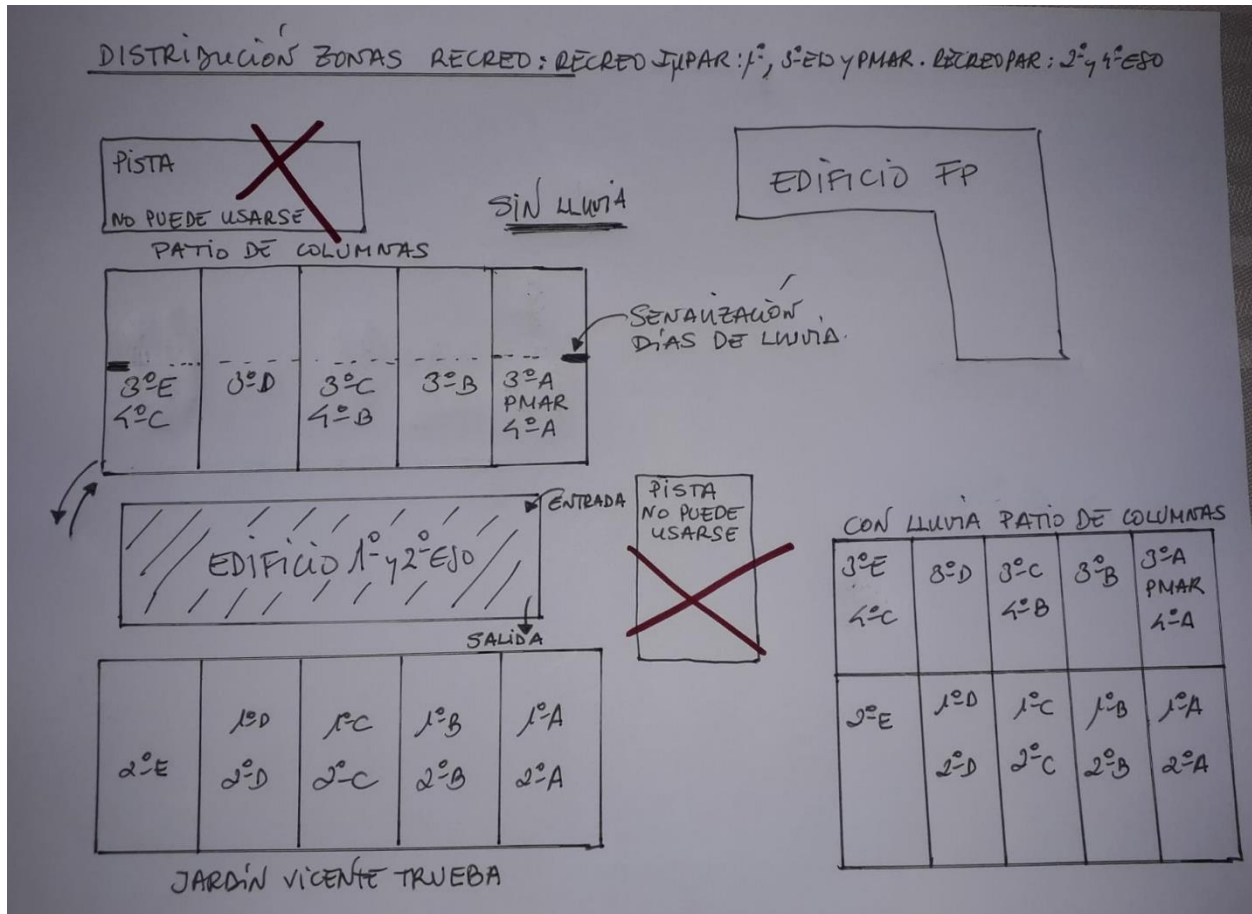 DISTRIBUCIÓN ZONAS RECREO: RECREO IMPAR: 1º, 3º ESO y PMAR. RECREO PAR: 2º y 4º ESO
PISTA
NO PUEDE USARSE
SIN LLUVIA
EDIFICIO FP
PATIO DE COLUMNAS
SEÑALIZACIÓN
DÍAS DE LLUVIA.
3ºE
4ºC
3ºD
3ºC
4ºB
3ºB
3ºA
PMAR
4ºA
ENTRADA
EDIFICIO 1º y 2º ESO
SALIDA
PISTA
NO PUEDE
USARSE
2ºE
1ºD
2ºD
1ºC
2ºC
1ºB
2ºB
1ºA
2ºA
JARDÍN VICENTE TRUEBA
CON LLUVIA PATIO DE COLUMNAS
3ºE
4ºC
3ºD
3ºC
4ºB
3ºB
3ºA
PMAR
4ºA
2ºE
1ºD
2ºD
1ºC
2ºC
1ºB
2ºB
1ºA
2ºA